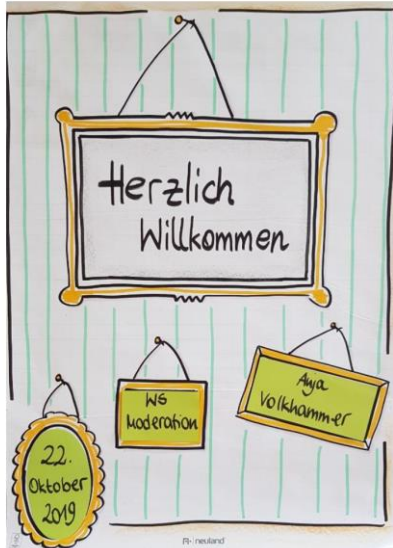 Herzlich
Willkommen
WS
Moderation
Anja
Volkhammer
22.
Oktober
2019
neuland